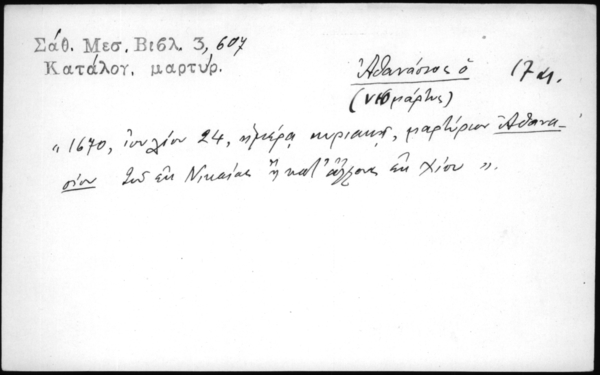 Σάθ. Μεσ. Βιβλ. 3, 607
Κατάλογ. μαρτύρ.
Ἀθανάσιος ὁ 17 αι.
(νεομάρτυς)
"1670, ἰουλίου 24, ἡμέρᾳ κυριακῇ, μαρτύριον Ἀθανα-
σίου τοῦ ἐκ Νικαίας ἢ κατ' ἄλλους ἐκ Χίου".